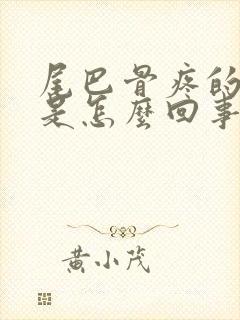 尾巴骨疼的
是怎麼回事
黄小茂